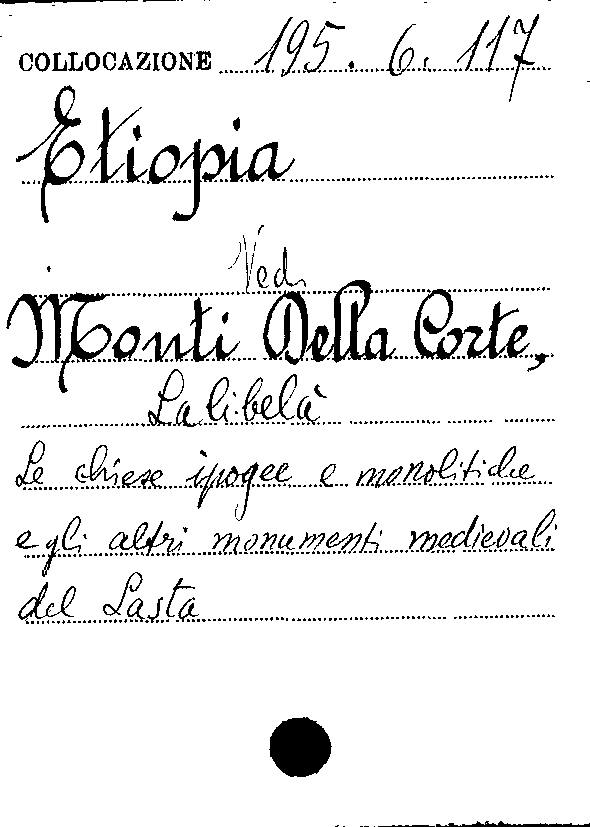 COLLOCAZIONE 195. 6. 117
Etiopia
Vedi
Monti Della Corte,
Lalibelà
Le chiese ipogee e monolitiche
e gli altri monumenti medievali
del Lasta